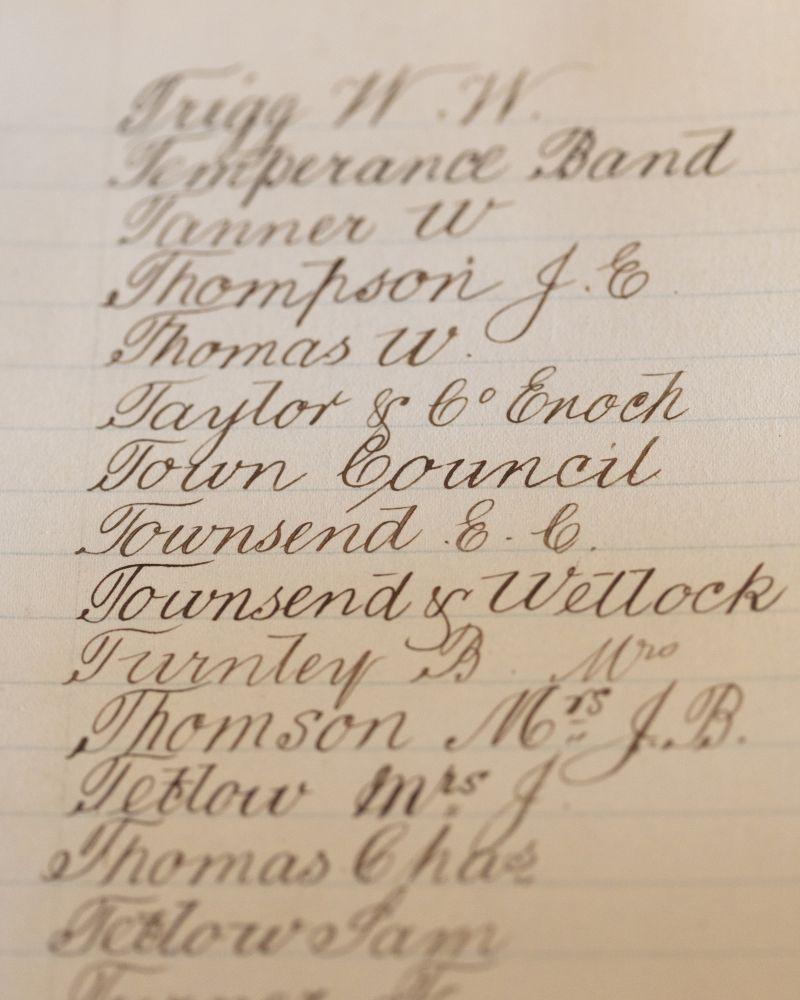 Trigg W. W.
Temperance Band
Tanner W
Thompson J. E.
Thomas W.
Taylor & Co Enoch
Town Council
Townsend E. C.
Townsend & Wetlock
Turnley B. Mrs
Thomson Mrs J. B.
Tetlow Mrs J
Thomas Chas
Tetlow Sam
Turner